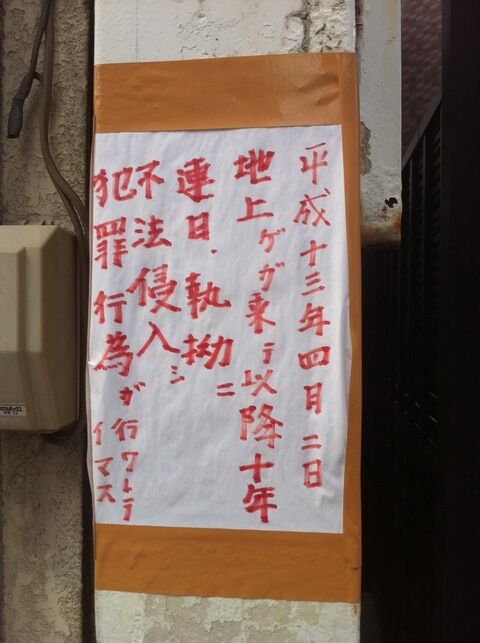 平成十三年四月二日
地上ゲガ来テ以降十年
連日、執拗ニ
不法侵入シ
犯罪行為ガ行ワレテ
イマス